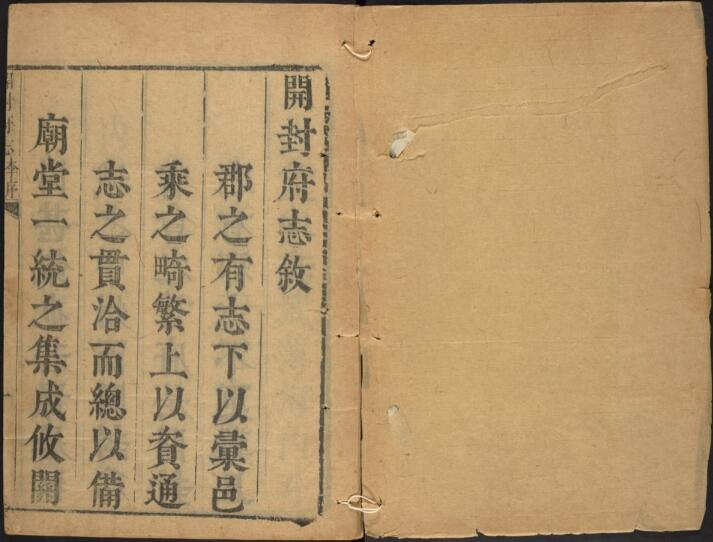 開封府志敘
郡之有志下以彙邑
乘之畸繁上以資通
志之貫洽而總以備
廟堂一統之集成攸關
開封府志李序